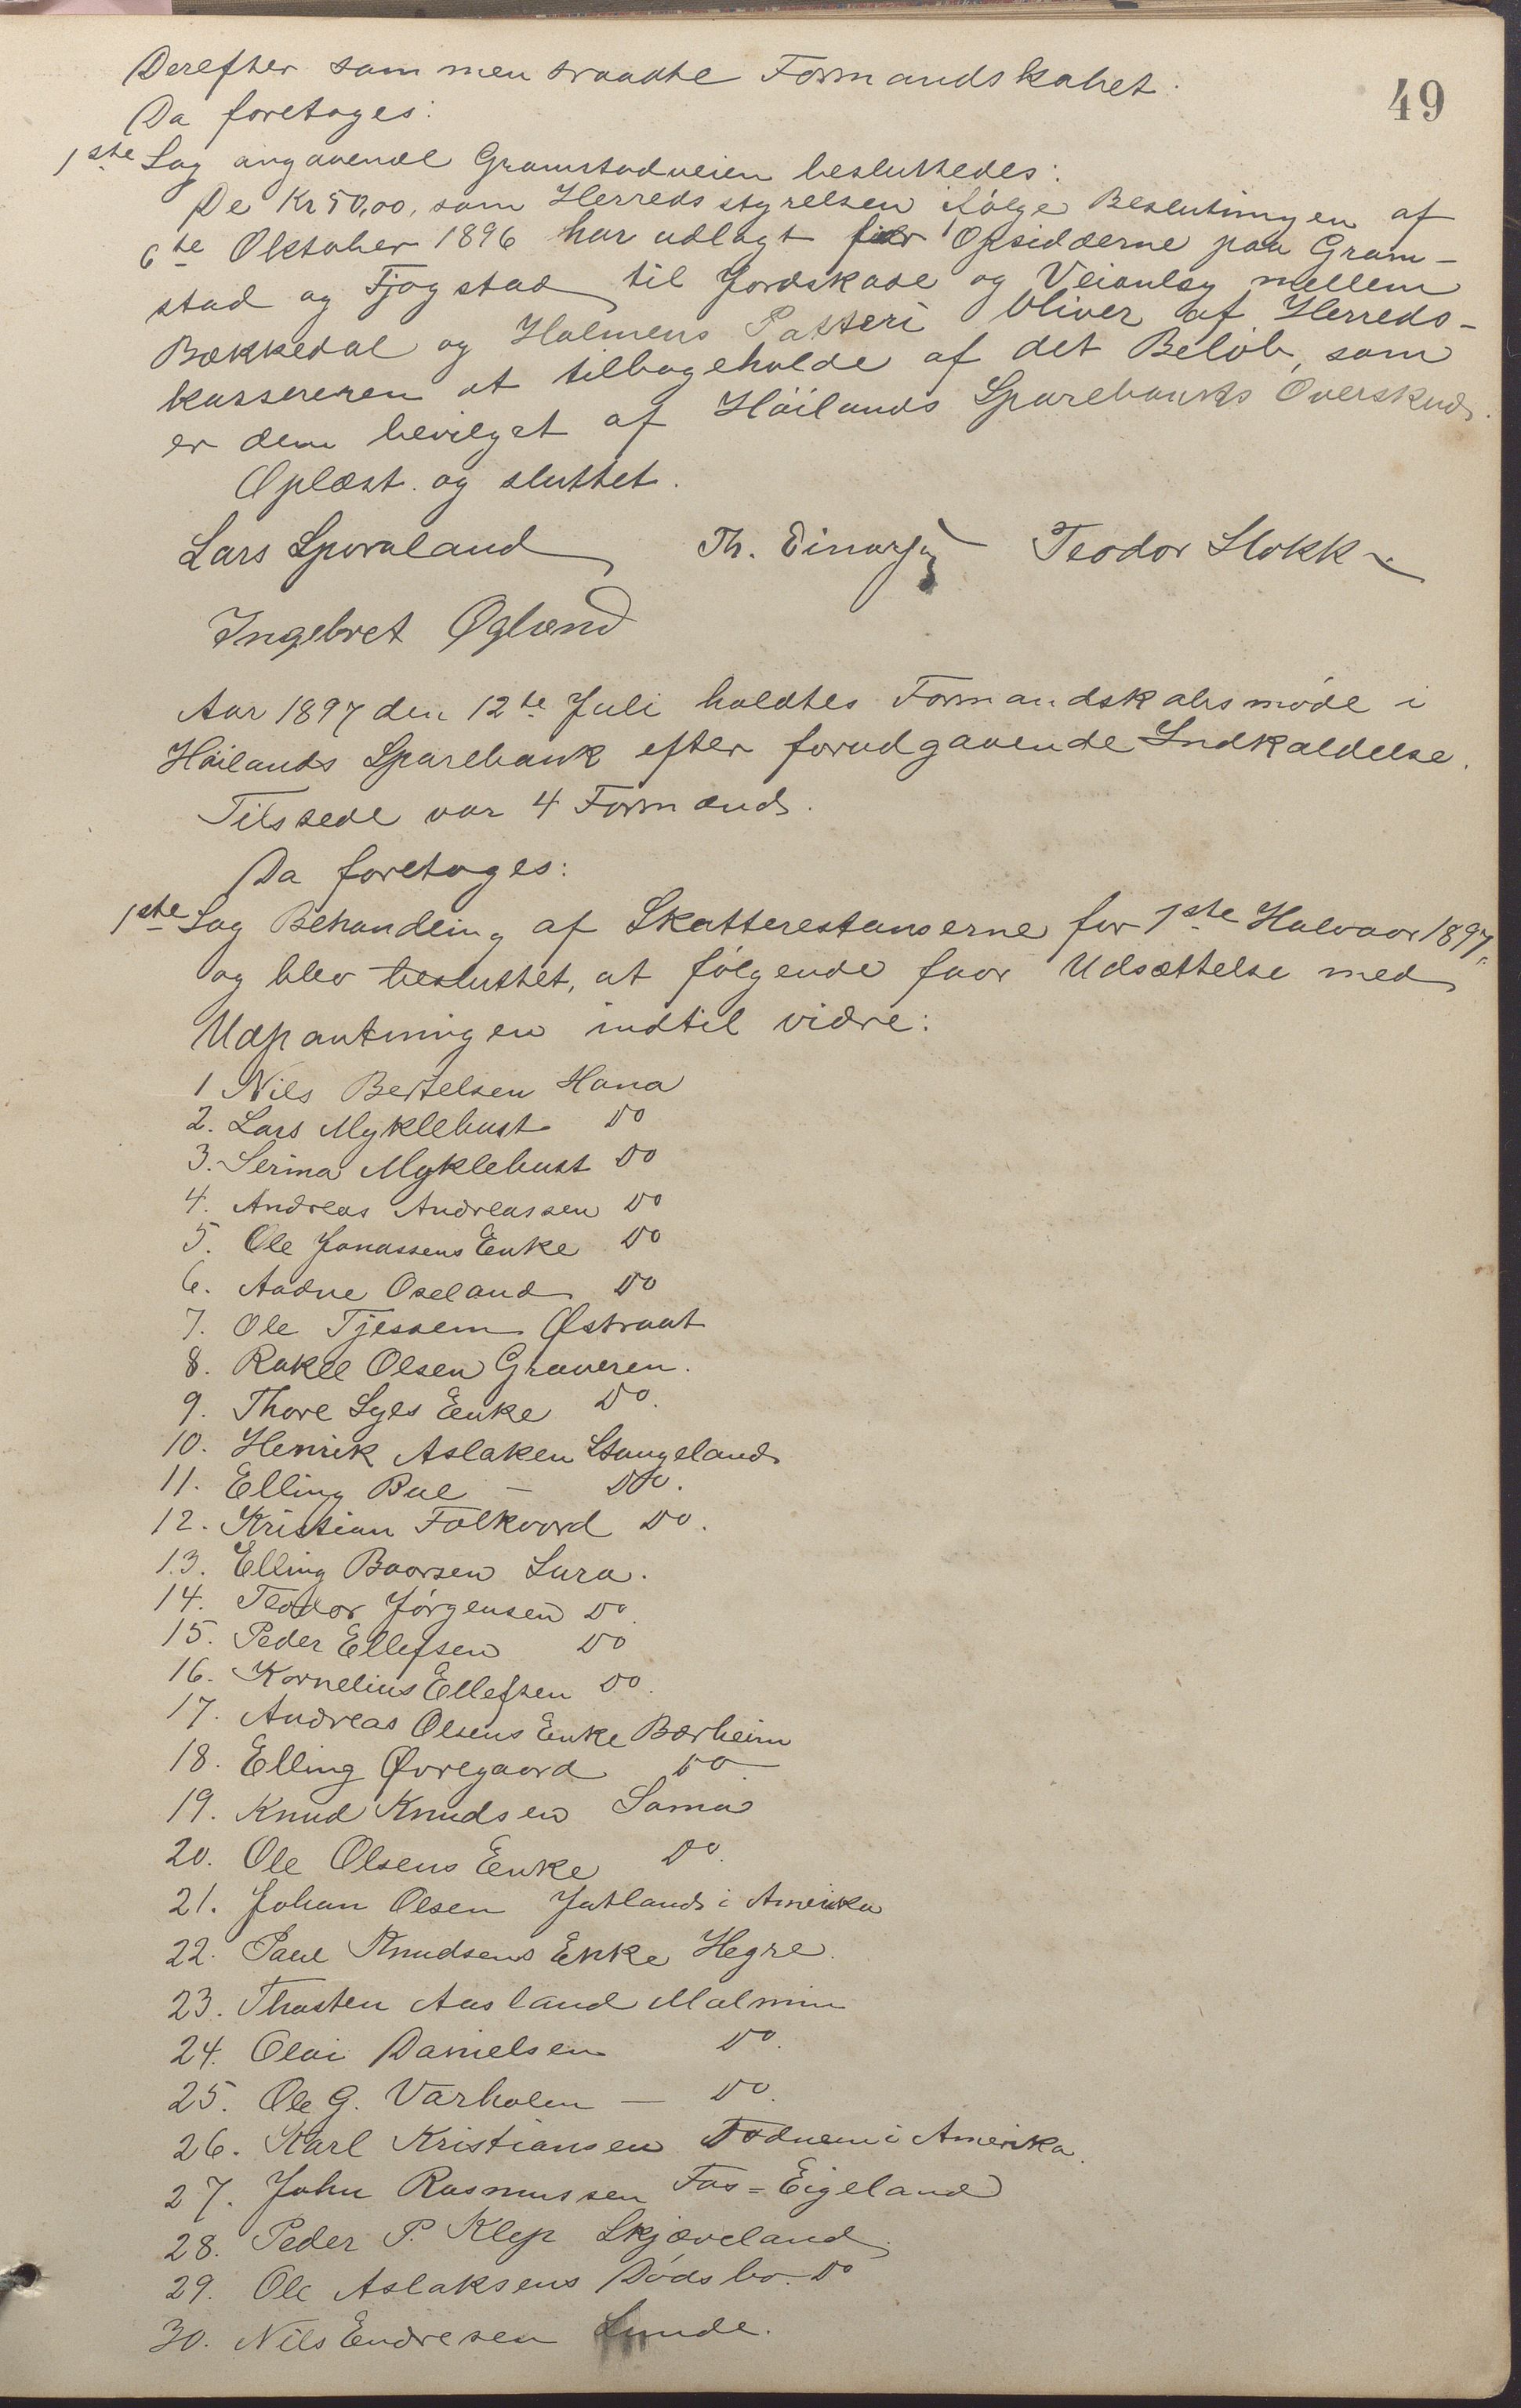 49
Derefter sammentraadte Formandskabet.
Da foretoges:
1ste Sag angaaende Gramstadveien besluttedes:
De Kr 50,00, som Herredsstyrelsen ifølge Beslutningen af
6te Oktober 1896 har udlagt for Opsidderne paa Gram-
stad og Fjogstad til Jordskade og Veianlæg mellem
Bækkedal og Holmens Potteri bliver af Herreds-
kassereren at tilbageholde af det Beløb, som
er dem bevilget af Höilands Sparebanks Overskud.
Oplæst og sluttet.
Lars Sporaland Th. Teodor Stokk
Ingebret Ogland
Aar 1897 den 12te Juli holdtes Formandskabsmøde i
Höilands Sparebank efter forudgaaende Indkaldelse.
Tilstede var 4 Formænd.
Da foretoges:
1ste Sag Behandling af Skatterestanserne for 1ste Halvaar 1897,
og blev besluttet, at følgende faar Udsættelse med
Udpantningen indtil vidre:
1 Nils Bertelsen Hana
2. Lars Myklebust Do
3. Serina Myklebust Do
4. Andreas Andreassen Do
5. Ole Jonassens Enke Do
6. Aadne Oseland Do
7. Ole Tjessem Østraat
8. Rakel Olsen Graveren.
9. Thore Lyes Enke Do.
10. Henrik Aslaken Stangeland
11. Elling Bue — Do.
12. Kristian Folkvord Do.
13. Elling Baarsen Lura.
14. Teodor Jørgensen Do.
15. Peder Ellefsen Do
16. Kornelius Ellefsen Do.
17. Andreas Olsens Enke Bærheim
18. Elling Øvregaard Do.
19. Knud Knudsen Soma
20. Ole Olsens Enke Do.
21. Johan Olsen Jatland i Amerika
22. Paul Knudsens Enke Hegre.
23. Thosten Aasland Malmin
24. Olai Danielsen Do.
25. Ole G. Varholen — Do.
26. Karl Kristiansen Todnem i Amerika.
27. John Rasmussen Fos=Eigeland
28. Peder P. Klep Skjæveland
29. Ole Aslaksens Dødsbo. Do
30. Nils Endresen Lunde.